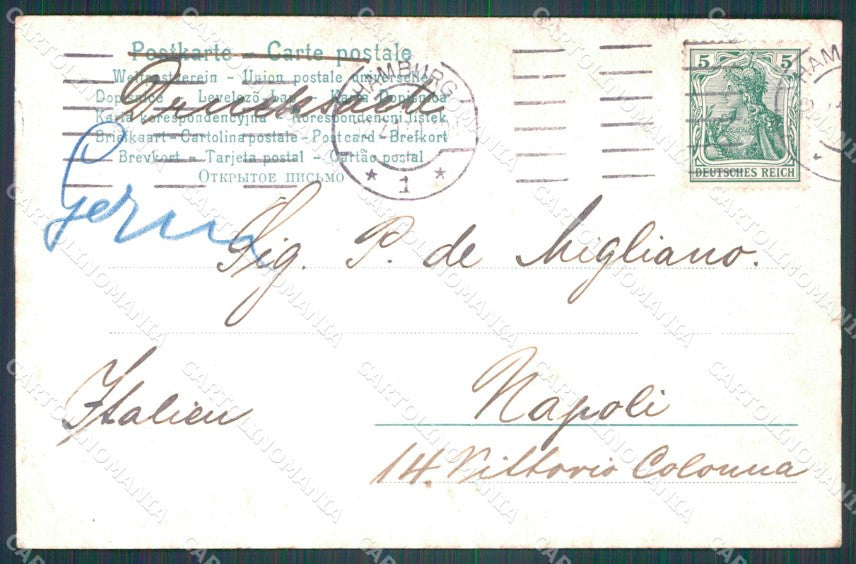 Postkarte - Carte postale
Weltpostverein - Union postale universelle
Dopisnice - Levelező-Lap - Karta Dopisnica
Karta korespondencyjna - Korespondenční lístek
Briefkaart - Cartolina postale - Postcard - Brefkort
Brevkort - Tarjeta postal - Cartão postal
Открытое письмо
Drucksache
HAMBURG
* 1 *
5 5
DEUTSCHES REICH
HAM
Sig. P. de Migliano.
Italien
Napoli
14. Vittorio Colonna
CARTOLINOMANIA